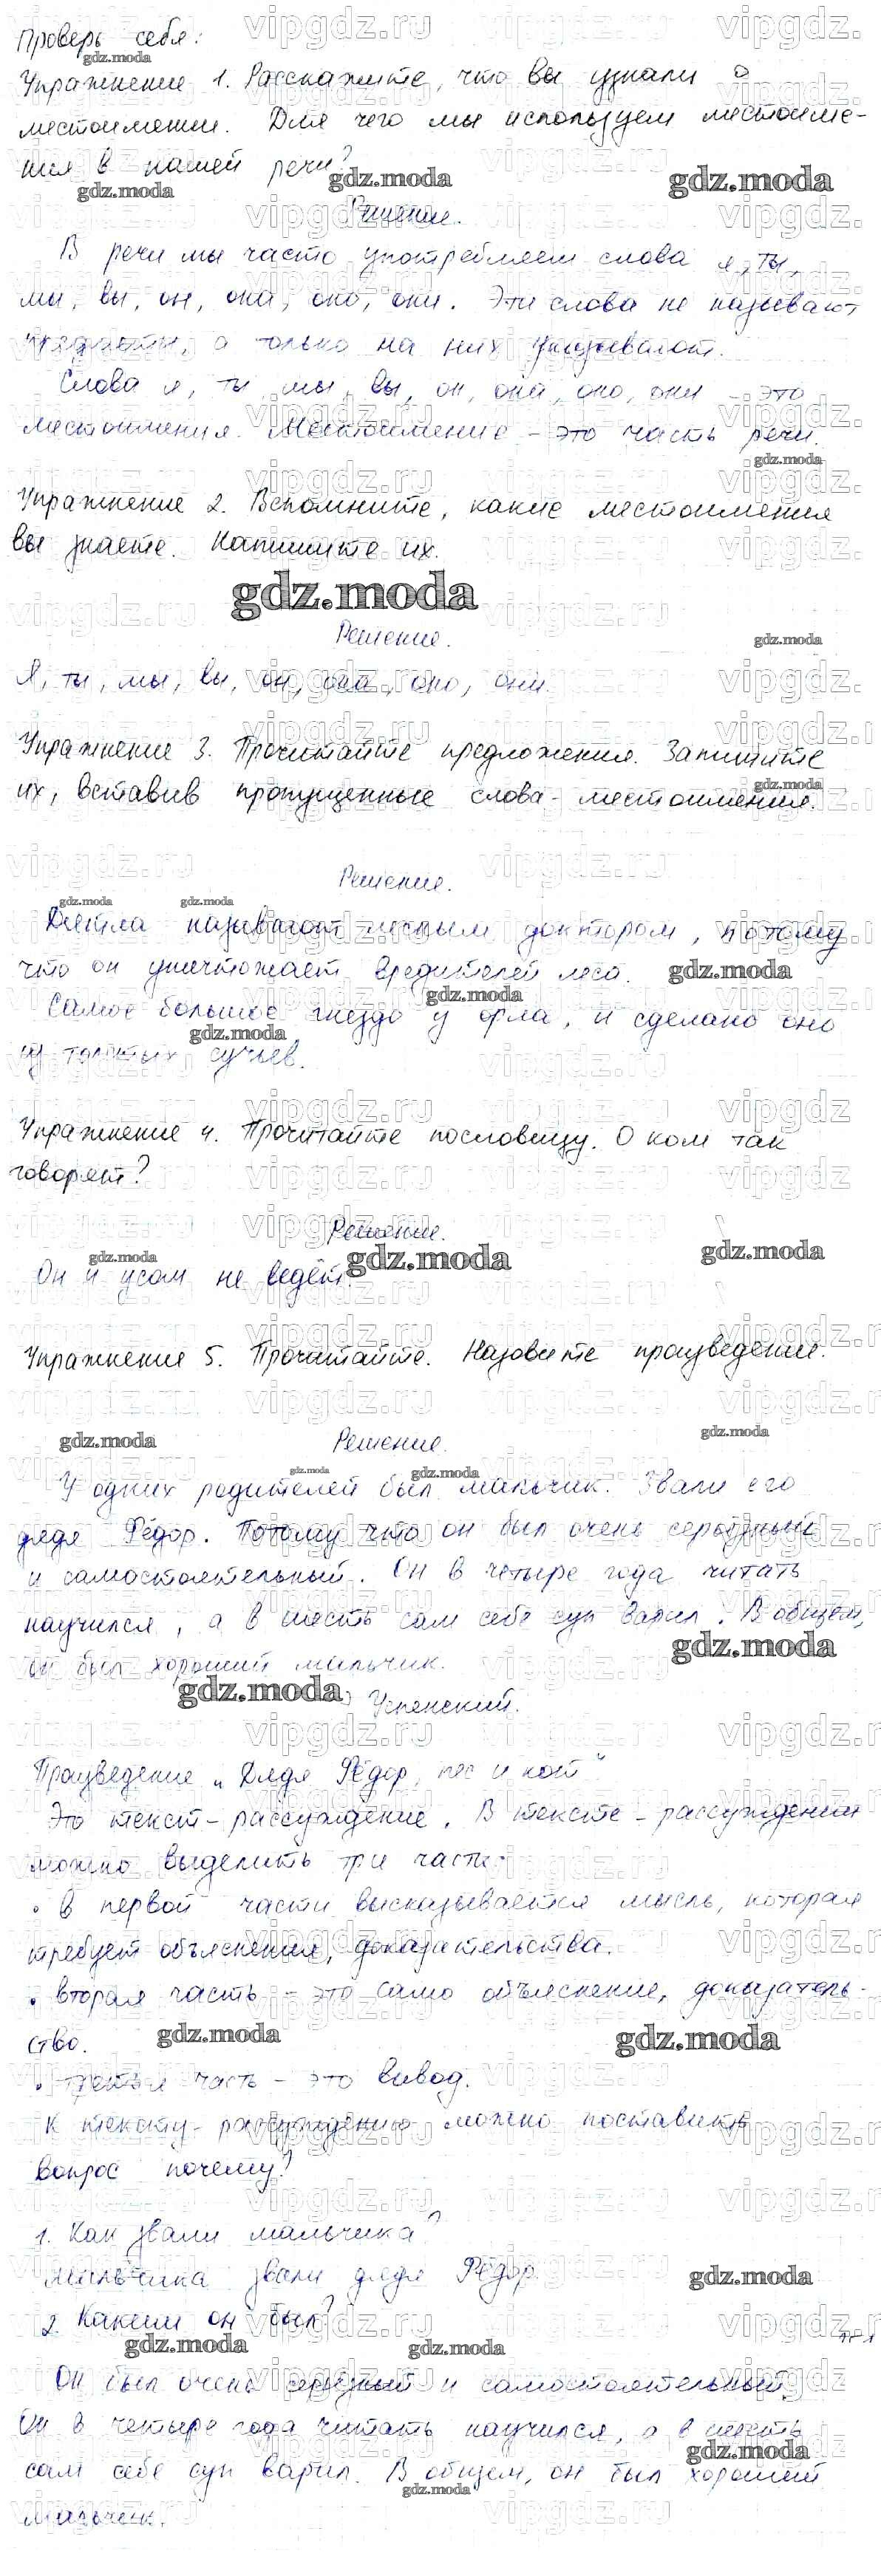 Проверь себя:
Упражнение 1. Расскажите, что вы узнали о
местоимении. Для чего мы используем местоиме-
ния в нашей речи?
Решение.
В речи мы часто употребляем слова я, ты,
мы, вы, он, она, оно, они. Эти слова не называют
предметы, а только на них указывают.
Слова я, ты, мы, вы, он, она, оно, они - это
местоимения. Местоимение - это часть речи.
Упражнение 2. Вспомните, какие местоимения
вы знаете. Напишите их.
Решение.
Я, ты, мы, вы, он, она, оно, они.
Упражнение 3. Прочитайте предложения. Запишите
их, вставив пропущенные слова - местоимения.
Решение.
Дятла называют лесным доктором, потому
что он уничтожает вредителей леса.
Самое большое гнездо у орла, и сделано оно
из толстых сучьев.
Упражнение 4. Прочитайте пословицу. О ком так
говорят?
Решение.
Он и усом не ведёт.
Упражнение 5. Прочитайте. Назовите произведение.
Решение.
У одних родителей был мальчик. Звали его
дядя Фёдор. Потому что он был очень серьёзный
и самостоятельный. Он в четыре года читать
научился, а в шесть сам себе суп варил. В общем,
он был хороший мальчик.
Успенский.
Произведение „Дядя Фёдор, пёс и кот"
Это текст-рассуждение. В тексте-рассуждении
можно выделить три части:
• в первой части высказывается мысль, которая
требует объяснения, доказательства.
• вторая часть - это само объяснение, доказатель-
ство.
• третья часть - это вывод.
К тексту-рассуждению можно поставить
вопрос почему?
1. Как звали мальчика?
Мальчика звали дядя Фёдор.
2. Каким он был?
Он был очень серьёзный и самостоятельный.
Он в четыре года читать научился, а в шесть
сам себе суп варил. В общем, он был хороший
мальчик.